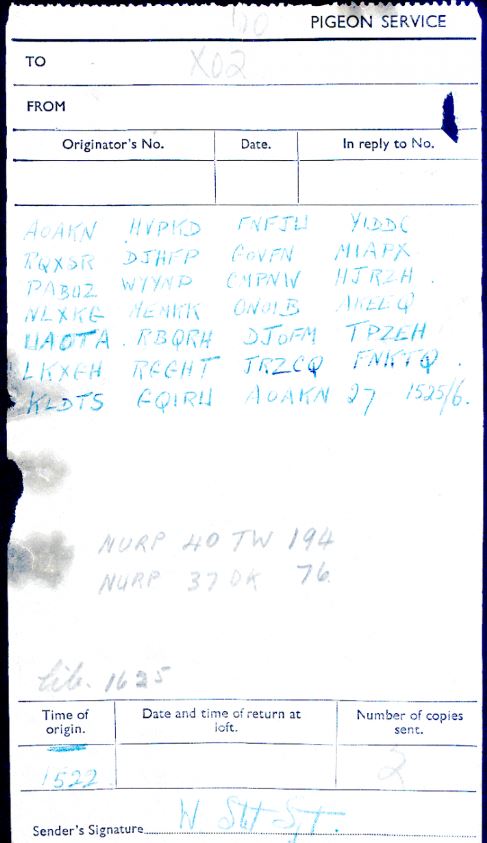 PIGEON SERVICE
TO X02
FROM
Originator's No. Date. In reply to No.
AOAKN HVPKD FNFJW YIDDC
RQXSR DJHFP GOVFN MIAPX
PABUZ WYYNP CMPNW HJRZH
NLXKG MEMKK ONOIB AKEEQ
UAOTA RBQRH DJOFM TPZEH
LKXGH RGGHT JRZCQ FNKTQ
KLDTS GQIRU AOAKN 27 1525/6.
NURP 40 TW 194
NURP 37 DK 76
lib. 1625
Time of origin. Date and time of return at loft. Number of copies sent.
1522 2
Sender's Signature W Stot Sjt.